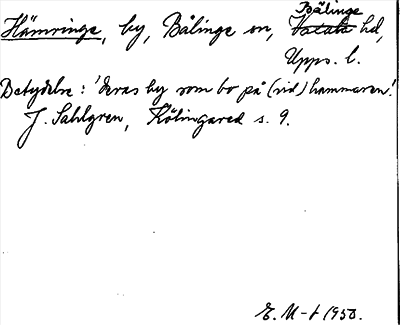 Hämringe, by, Bälinge sn, Bälinge hd,
Upps. l.
Betydelse: 'deras by som bo på (vid) hammaren'.
J. Sahlgren, Kölingared s. 9.
E. M-t 1950.